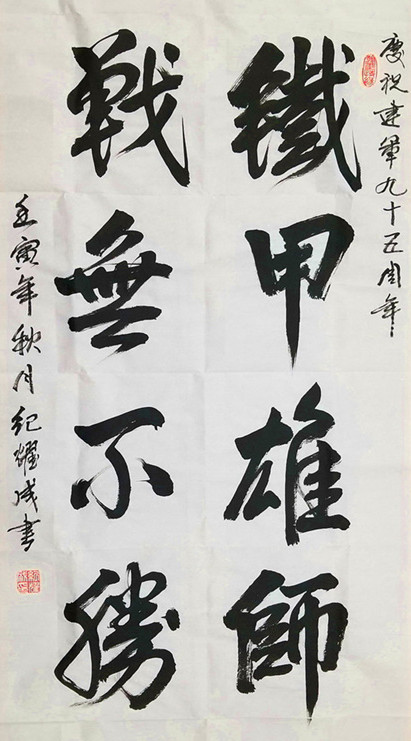 慶祝建軍九十五周年
鐵甲雄師
戰無不勝
壬寅年秋月紀耀成書